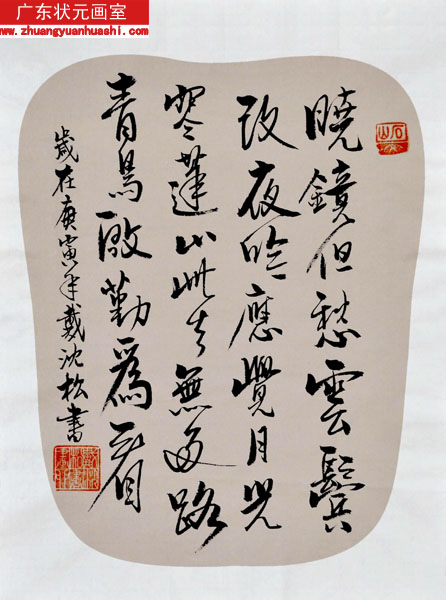 广东状元画室
www.zhuangyuanhuashi.com
曉鏡但愁雲鬢
改夜吟應覺月光
寒蓬山此去無多路
青鳥殷勤爲看
歲在庚寅年戴沈松書